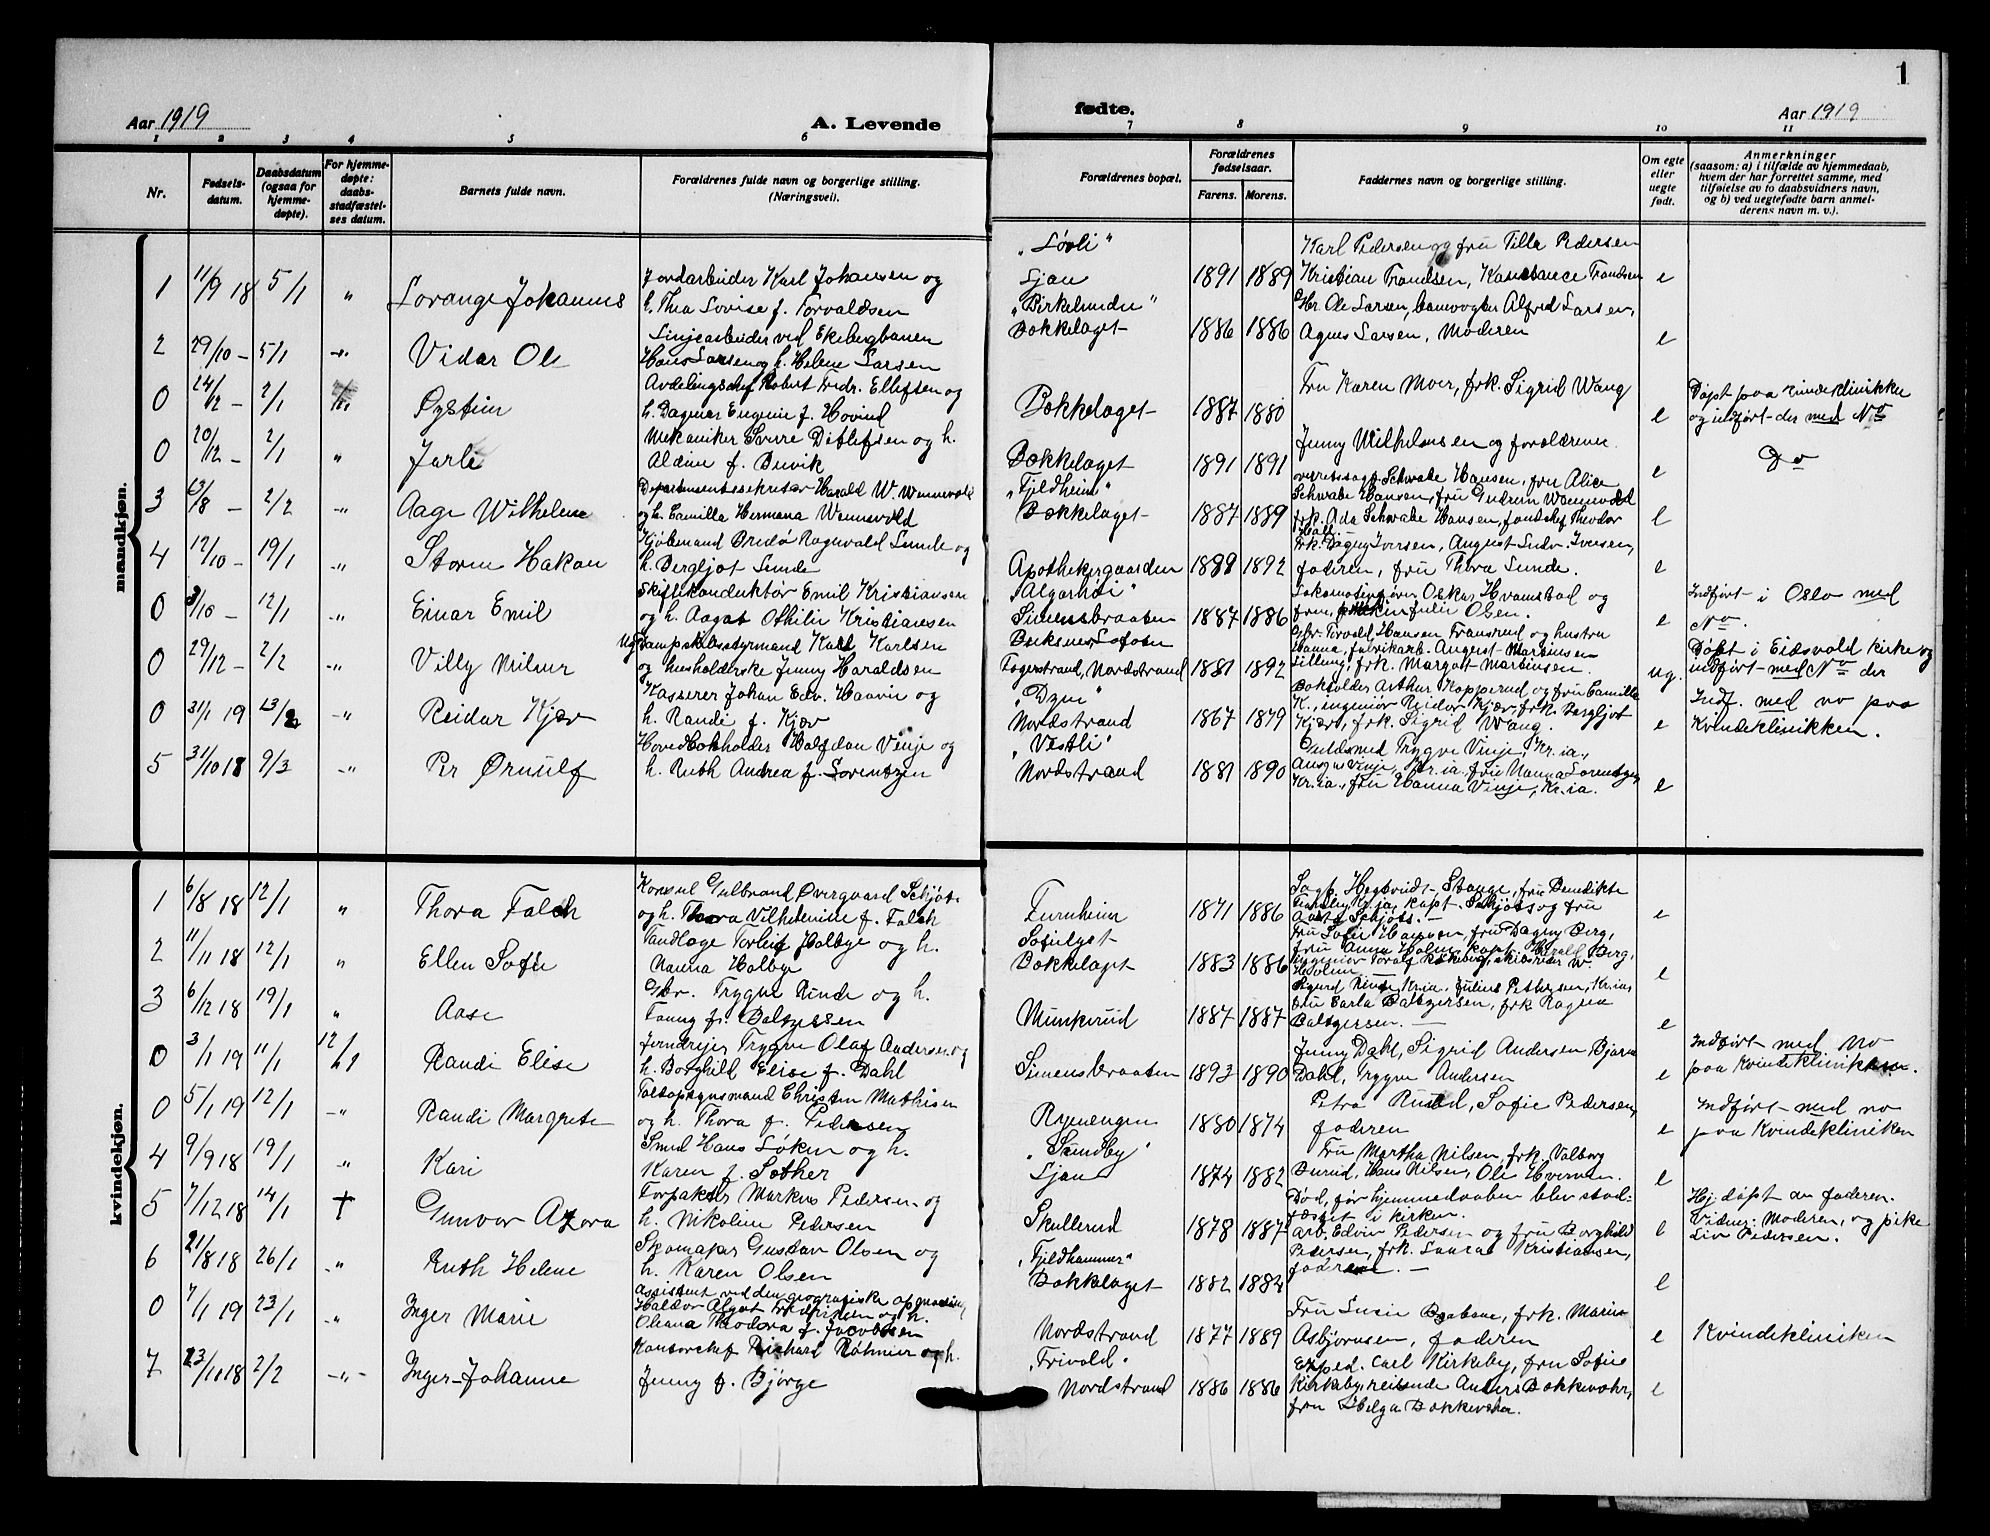 1
Aar 1919
A. Levende
fødte.
Aar 1919
1 2 3 4 5 6 7 8 9 10 11
Nr.
Fødsels-
datum.
Daabsdatum
(ogsaa for
hjemme-
døpte).
For hjemme-
døpte:
daabs-
stadfæstel-
ses datum.
Barnets fulde navn.
Forældrenes fulde navn og borgerlige stilling.
(Næringsvei).
Forældrenes bopæl.
Forældrenes
fødselsaar.
Farens. Morens.
Faddernes navn og borgerlige stilling.
Om egte
eller
uegte
født.
Anmerkninger
(saasom: a) i tilfælde av hjemmedaab,
hvem der har forrettet samme, med
tilføielse av to daabsvidners navn,
og b) ved uegtefødte barn anmel-
derens navn m. v.).
mandkjøn.
1 11/9 18 5/1 " Lorang Johannes
Jordarbeider Karl Johansen og
h. Thea Lovise f. Torvaldsen
"Løvli"
Ljan 1891 1889
Karl Pedersen og fru Tilla Pedersen
Kristian Trandsen, Konstance Trandsen e
2 29/10 - 5/1 -"- Vidar Ole
Linjearbeider ved Ekebergbanen
Hans Larsen og h. Helene Larsen
"Birkelunden"
Bækkelaget 1886 1886
Gbr. Ole Larsen, banevogter Alfred Larsen,
Agnes Larsen, Moderen e
0 24/12 - 2/1 Øystein
Avdelingschef Robert Fredr. Ellefsen og
h. Dagmar Eugenie f. Hovind
Bækkelaget 1887 1880
Fru Karen Moer, frk. Sigrid Wang e
Døpt paa kvindeklinikken
og indført der med No
0 20/12 - 2/1 " Jarle
Mekaniker Sverre Ditlefsen og h.
Aldine f. Buvik
Bækkelaget 1891 1891
Jenny Wilhelmsen og forældrene e
Do
3 13/8 - 2/2 -"- Aage Wilhelm
Departementssekretær Harald W. Wennevold
og h. Camilla Hermana Wennevold
"Fjeldheim"
Bækkelaget 1887 1889
overretssagf. Schwabe Hansen, fru Alice
Schwabe Hansen, fru Gudrun Wennevold
frk. Ada Schwabe Hansen, fondschef Theodor
Hall e
4 12/10 - 19/1 -"- Storm Hakon
Kjøbmand Fredø Ragnvald Sunde og
h. Bergljot Sunde
Apothekergaarden 1888 1892
Frk. Dagny Iversen, August Ludv. Iversen,
faderen, fru Thora Sunde. e
0 3/10 - 12/1 -"- Einar Emil
Skiftekonduktør Emil Kristiansen
og h. Aagot Othilie Kristiansen
"Algarhøi"
Simensbraaten 1887 1886
Lokomotivfører Oskar Hvamstad og
frue, Julie Olsen. e
Indført i Oslo med
No.
0 29/12 - 2/2 -"- Villy Milner
Ug. Dampskibsstyrmand Karl Karlsen
og husholderske Jenny Haraldsen
Fagerstrand, Nordstrand 1881 1892
Gbr. Torvald Hansen, Fransrud og hustru
Hanna, fabrikarb. August Martinsen
Lilleng, frk. Margot Martinsen. ug.
Døpt i Eidsvold kirke og
indført med No der
0 31/1 19 23/2 -"- Reidar Kjær
Kasserer Johan Edv. Haavie og
h. Randi f. Kjær
"Dgni"
Nordstrand 1867 1879
Bokholder Arthur Kopperud og fru Camilla
K., ingeniør Reidar Kjær, frk. Bergljot
Kjær, frk. Sigrid Wang. e
Indf. med no paa
Kvindeklinikken.
5 31/10 18 9/3 -"- Per Ørnulf
Hovedbokholder Halfdan Vinje og
h. Ruth Andrea f. Lorentzen
"Vestli"
Nordstrand 1881 1890
Guldsmed Trygve Vinje, Kr.ia,
Aasgn Vinje, Kr.ia., fru Nanna Lorentzen
Kr.ia., fru Hanna Vinje, Kr.ia. e
kvindekjøn.
1 6/8 18 12/1 " Thora Falch
Konsul Gulbrand Øvergaard Schjøtt
og h. Thora Vilhelmine f. Falch
Furuheim 1871 1886
Sagf. Hegtvedt Stange, fru Benedikte
Kr.ia, kapt. Schjøtt og fru
Aasta Schjøtt. e
2 11/11 18 12/1 " Ellen Sofie
Tandlæge Torleif Holbye og h.
Nanna Holbye
Sofielyst
Bækkelaget 1883 1886
Fru Sofie Hansson, fru Dagny Berg,
fru Anna Holm, kapt. Harald Berg,
ingeniør Toralf Bækkelid, skibsreder W.
e
3 6/12 18 19/1 " Aase
Gbr. Trygve Rinde og h.
Fanny f. Baltzersen
Munkerud 1887 1887
Sigurd Rinde, Kr.ia, Julius Pettersen, Kr.ia,
fru Carla Baltzersen, frk Ragna
Baltzersen. e
0 3/1 19 11/1 12/1 Randi Elise
Jerndreier Trygve Olaf Andersen og
h. Borghild Elise f. Dahl
Simensbraaten 1893 1890
Jenny Dahl, Sigrid Andersen Bjarne
Dahl, Trygve Andersen e
Indført med No
paa Kvindeklinikken.
0 5/1 19 12/1 -"- Randi Margrete
Toldopsynsmand Christen Mathisen
og h. Thora f. Pedersen
Ryenengen 1880 1874
Petra Rustad, Sofie Pedersen,
faderen e
Indført med no
paa Kvindekliniken
4 9/9 18 19/1 " Kari
Smed Hans Løken og h.
Karen f. Sother
"Sundby"
Ljan 1874 1882
Fru Martha Nilsen, frk. Valborg
Burud, Hans Nilsen, Ole Hverven. e
5 7/12 18 14/1 † Gunvor Azora
Forpakter Markus Pedersen og
h. Nikoline Pedersen
Skullerud 1878 1887
Død, før hjemmedaaben blev stad-
fæstet i kirken. e
Hj. døpt av faderen.
Vidner: Moderen, og pike
Liv Pedersen.
6 21/8 18 26/1 -"- Ruth Helene
Skomaker Gustav Olsen og
h. Karen Olsen
"Fjeldhammer"
Bækkelaget 1882 1884
Arb. Edvin Pedersen og fru Borghild
Pedersen, frk. Laura Kristiansen,
faderen. e
0 7/1 19 23/1 -"- Inger Marie
Assistent ved den geografiske opmaaling
Haldor Algot Fredriksen og h.
Oleana Theodora f. Jacobsen
Nordstrand 1877 1889
Fru Susie, frk. Marie
Asbjørnsen, faderen e
Kvindekliniken
7 23/11 18 2/2 -"- Inger-Johanne
Kontorchef Richard Røhmer og h.
Jenny f. Bjørge
"Trivold"
Nordstrand 1886 1886
Exped. Carl Kirkeby, fru Sofie
Kirkeby, reisende Anders Bækkevahr,
fru Helga Bækkevahr. e